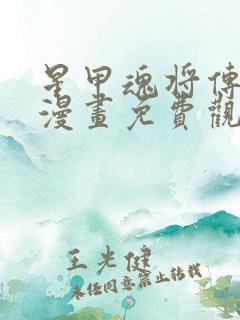 星甲魂将傳
漫畫免費觀
王光健
未經同意禁止轉載